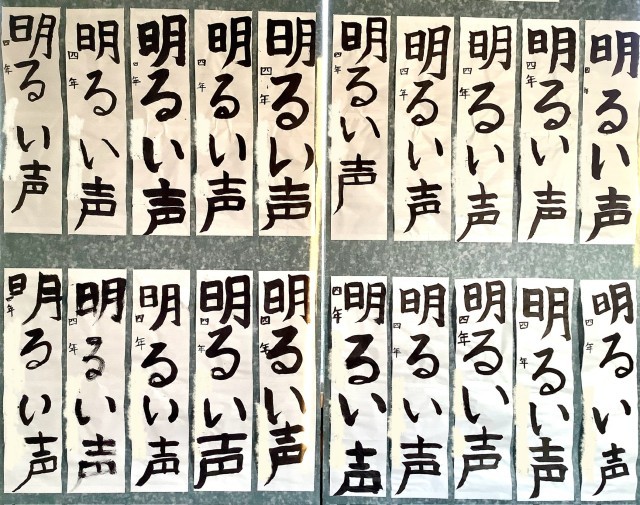 明るい声
四年
明るい声
四年
明るい声
四年
明るい声
四年
明るい声
四年
明るい声
四年
明るい声
四年
明るい声
四年
明るい声
四年
明るい声
四年
明るい声
四年
明るい声
四年
明るい声
四年
明るい声
四年
明るい声
四年
明るい声
四年
明るい声
四年
明るい声
四年
明るい声
四年
明るい声
四年